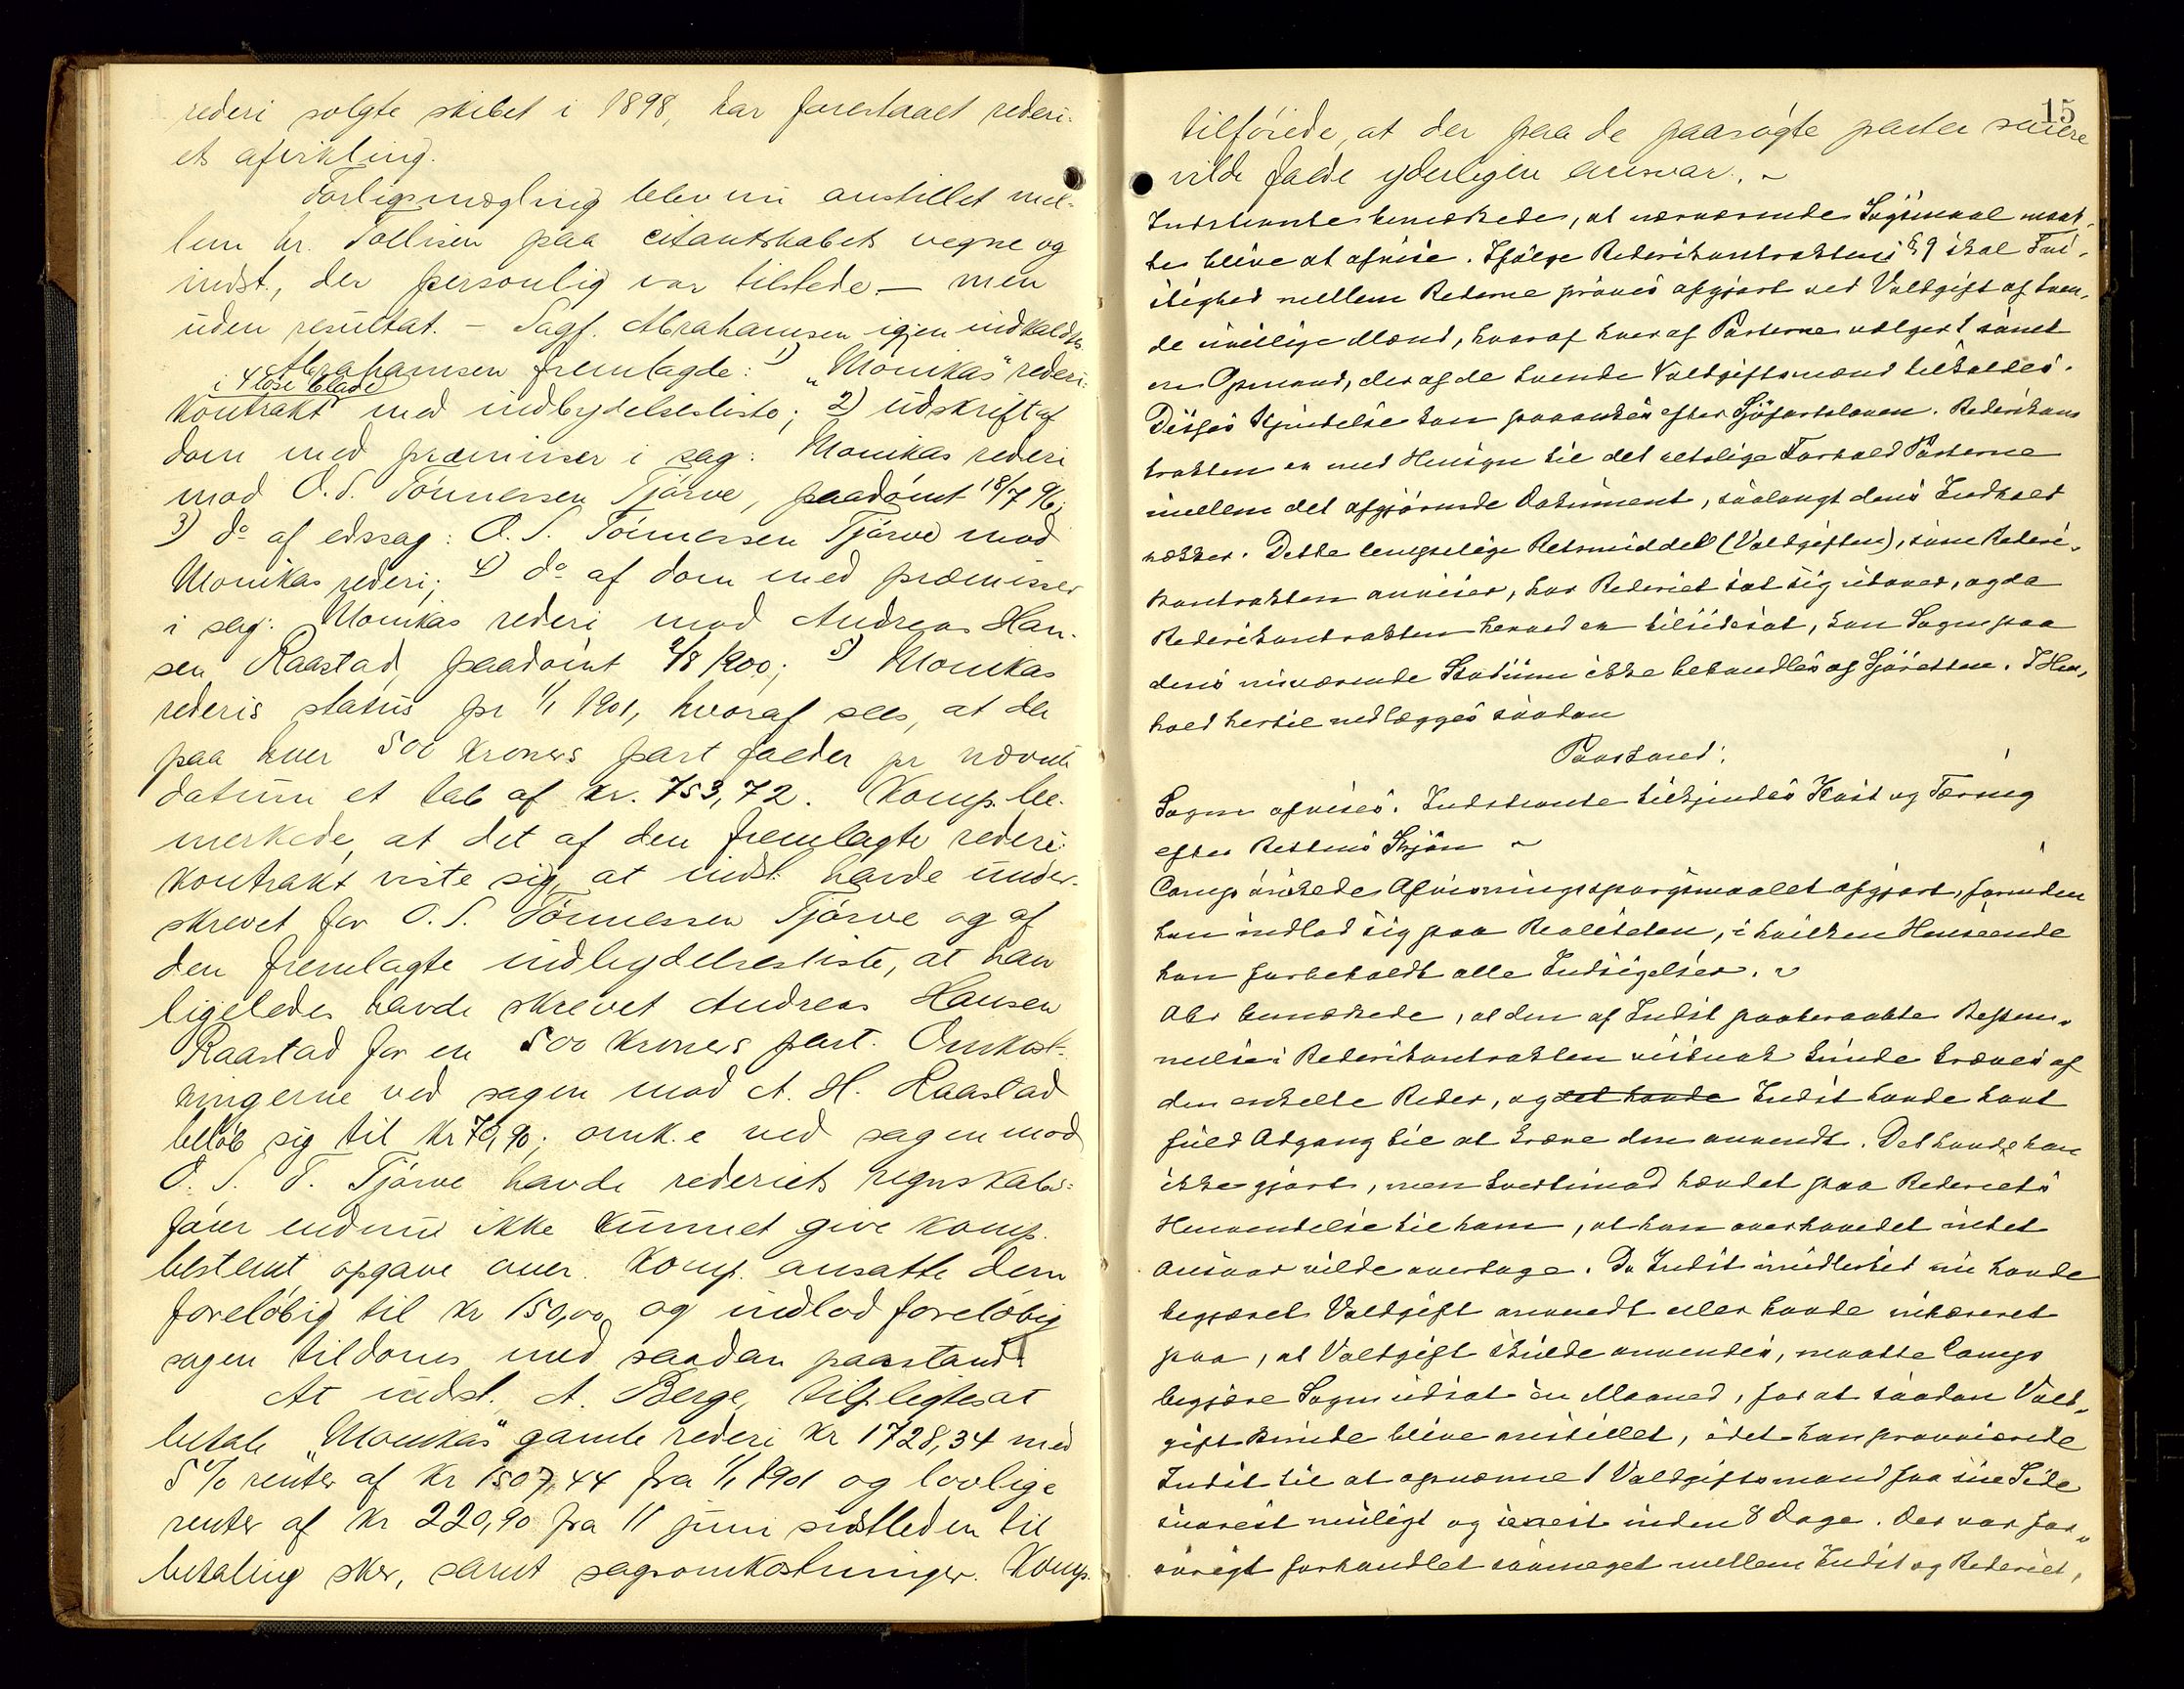 rederi solgte skibet i 1898, har forestaaet rederi-
ets afvikling.
Forligsmægling blev nu anstillet mel-
lem hr. Tollisen paa citantskabets vegne og
indst., der personlig var tilstede — men
uden resultat. — Sagf. Abrahamsen igjen indkaldtes.
Abrahamsen fremlagde: 1) "Monikas" rederi-
i 4 løse blade
kontrakt med indbydelsesliste; 2) udskrift af
dom med præmisser i sag: Monikas rederi
mod O. S. Tönnessen Tjörve, paadömt 18/7 96;
3) do af edssag: O. S. Tönnessen Tjörve mod
Monikas rederi; 4) do af dom med præmisser
i sag: Monikas rederi mod Andreas Han-
sen Raastad, paadömt 2/8 1900; 5) Monikas
rederis status pr 1/1 1901, hvoraf sees, at der
paa hver 500 kroners part falder pr nævnte
datum et tab af kr. 753,72. Komp. be-
merkede, at det af den fremlagte rederi-
kontrakt viste sig, at indst. havde under-
skrevet for O. S. Tönnessen Tjörve og af
den fremlagte indbydelsesliste, at han
ligeledes havde skrevet Andreas Hansen
Raastad for en 500 kroners part. Omkost-
ningerne ved sagen mod A. H. Raastad
belöb sig til kr 70,90; omk.e ved sagen mod
O. S. T. Tjörve havde rederiets regnskabs-
förer endnu ikke kunnet give komp.
bestemt opgave over. Komp. ansatte dem
forelöbig til kr 150,00 og indlod forelöbig
sagen til doms med saadan paastand:
At indst. A. Berge, tilpligtes at
betale "Monikas" gamle rederi kr 1728,34 med
5 % renter af kr 1507,44 fra 1/1 1901 og lovlige
renter af kr 220,90 fra 11 juni sidstleden til
betaling sker, samt sagsomkostninger. Komp.
15
tilföiede, at der paa de paasögte parter senere
vilde falde yderligere ansvar. ~
Indstevnte bemærkede, at nærværende Søgsmaal maat-
te blive at afvise. Ifølge Rederikontraktens § 9 skal Tvi-
stighed mellem Rederne prøves afgjort ved Voldgift af tven-
de uvillige Mænd, hvoraf hver af Parterne vælger 1 samt
en Opmand, der af de tvende Voldgiftsmænd tilkaldes.
Disses Kjendelse kan paaankes efter Sjøfartsloven. Rederikon
trakten er med Hensyn til det retslige Forhold Parterne
imellem det afgjørende Dokument, saalangt dens Indhold
rækker. Dette lempelige Retsmiddel (Voldgiften), som Rederi-
kontrakten anviser, har Rederiet sat sig udover, og da
Rederikontrakten herved er tilsidesat, kan Sagen paa
dens nuværende Stadium ikke behandles af Sjøretten. I Hen-
hold hertil nedlægges saadan
Paastand:
Sagen afvises. Indstevnte tilkjendes Kost og Tæring
efter Rettens Skjøn ~
Comp ønskede Afvisningsspørgsmaalet afgjort, forinden
han indlod sig paa Realiteten, i hvilken Henseende
han forbeholdt alle Indsigelser. ~
Abr bemærkede, at den af Indst paaberaabte Bestem-
melse i Rederikontrakten vistnok kunde kræves af
den enkelte Reder, og det havde Indst havde havt
fuld Adgang til at kræve den anvendt. Det havde han
ikke gjort, men tvertimod hævdet paa Rederiets
Henvendelse til ham, at han overhovedet intet
Ansvar vilde overtage. Da Indst imidlertid nu havde
begjæret Voldgift anvendt eller havde
paa, at Voldgift skulde anvendes, maatte Comp
begjære Sagen udsat én Maaned, for at saadan Vold-
gift kunde blive anstillet, idet han provocerede
Indst til at opnævne 1 Voldgiftsmand fra sin Side
snarest muligt og senest inden 8 Dage. Der var for-
øvrigt forhandlet saameget mellem Indst og Rederiet,